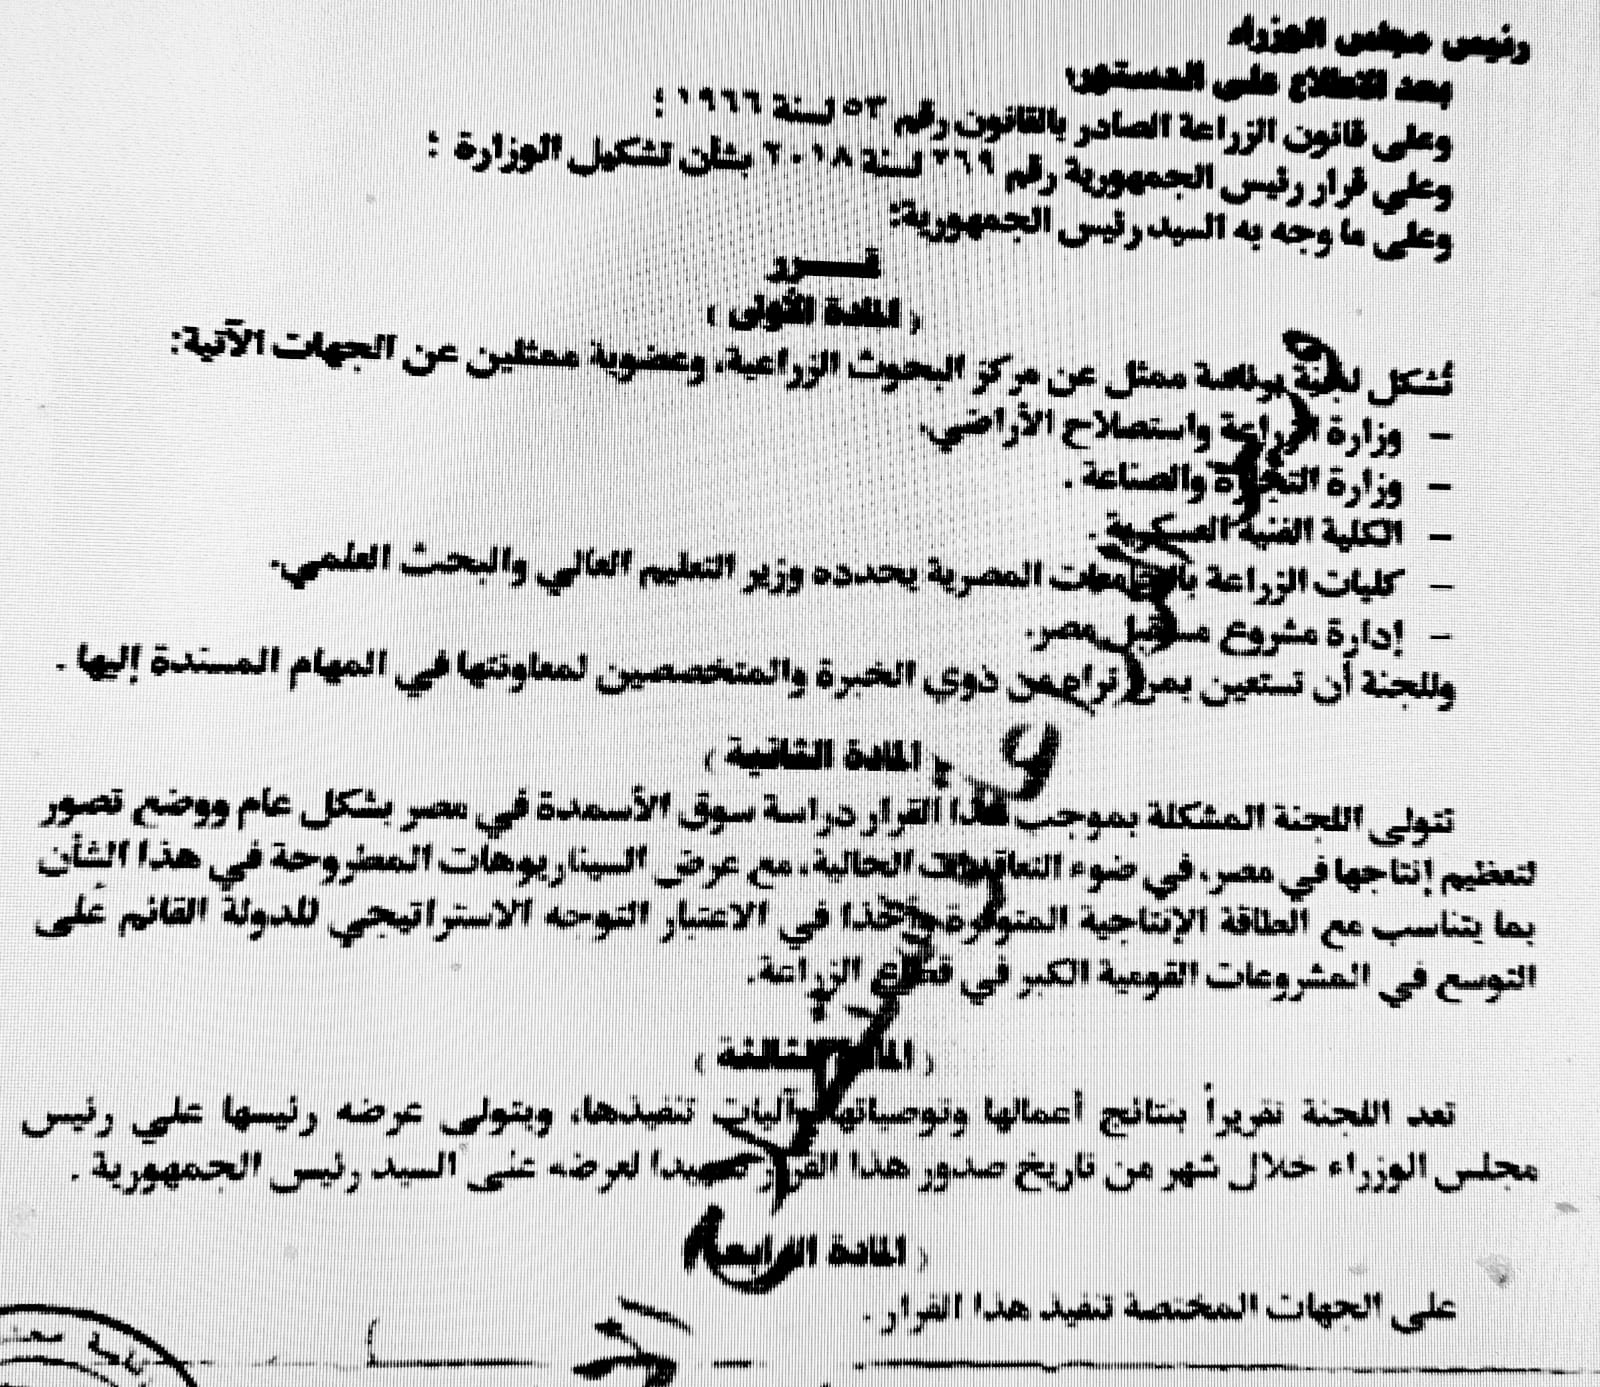 رئيس مجلس الوزراء
بعد الاطلاع على الدستور؛
وعلى قانون الزراعة الصادر بالقانون رقم ٥٣ لسنة ١٩٦٦ ؛
وعلي قرار رئيس الجمهورية رقم ٢٦٩ لسنة ٢٠١٨ بشأن تشكيل الوزارة ؛
وعلى ما وجه به السيد رئيس الجمهورية:
قـــــرر
( المادة الأولى )
تُشكل لجنة برئاسة ممثل عن مركز البحوث الزراعية، وعضوية ممثلين عن الجهات الآتية:
– وزارة الزراعة واستصلاح الأراضي.
– وزارة التجارة والصناعة .
– الكلية الفنية العسكرية .
– كليات الزراعة بالجامعات المصرية يحدده وزير التعليم العالي والبحث العلمي.
– إدارة مشروع مستقبل مصر.
وللجنة أن تستعين بمن تراه من ذوي الخبرة والمتخصصين لمعاونتها في المهام المسندة إليها .
( المادة الثانية )
تتولى اللجنة المشكلة بموجب هذا القرار دراسة سوق الأسمدة في مصر بشكل عام ووضع تصور
لتعظيم إنتاجها في مصر، في ضوء التعاقدات الحالية، مع عرض السيناريوهات المطروحة في هذا الشأن
بما يتناسب مع الطاقة الإنتاجية المتوفرة وأخذا في الاعتبار التوجه الاستراتيجي للدولة القائم على
التوسع في المشروعات القومية الكبر في قطاع الزراعة.
( المادة الثالثة )
تعد اللجنة تقريراً بنتائج أعمالها وتوصياتها وآليات تنفيذها، ويتولى عرضه رئيسها علي رئيس
مجلس الوزراء خلال شهر من تاريخ صدور هذا القرار تمهيدا لعرضه على السيد رئيس الجمهورية .
( المادة الرابعة )
على الجهات المختصة تنفيذ هذا القرار .